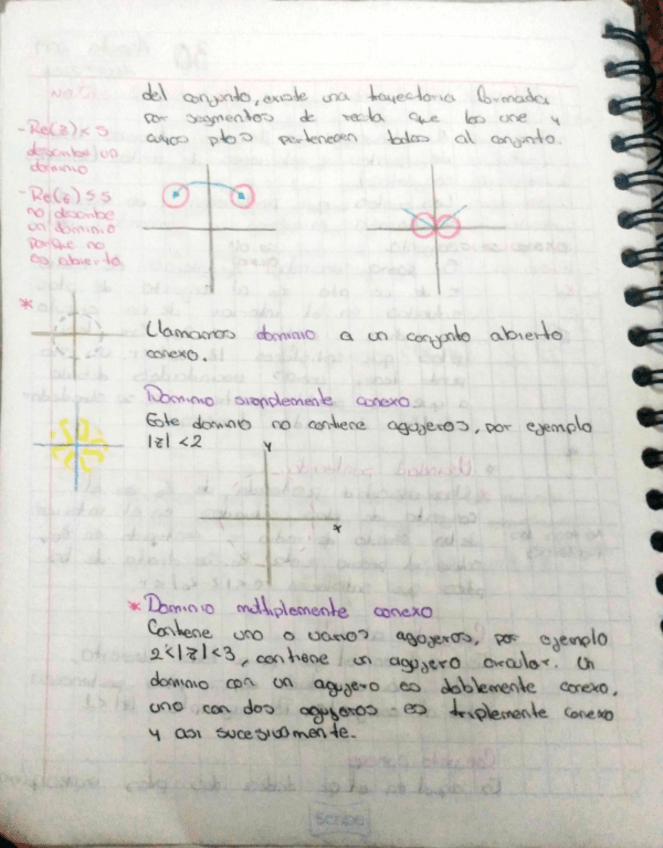 del conjunto, existe una trayectoria formada
por segmentos de recta que los une y
cuyos ptos pertenecen todos al conjunto.
- Re(z) < 5
describe un
dominio
- Re(z) ≤ 5
no describe
un dominio
porque no
es abierto
*
Llamamos dominio a un conjunto abierto
conexo.
Dominio simplemente conexo
Este dominio no contiene agujeros, por ejemplo
|z| < 2
y
x
* Dominio multiplemente conexo
Contiene uno o varios agujeros, por ejemplo
2<|z|<3, contiene un agujero circular. Un
dominio con un agujero es doblemente conexo,
uno con dos agujeros es triplemente conexo
y asi sucesivamente.
Scribe